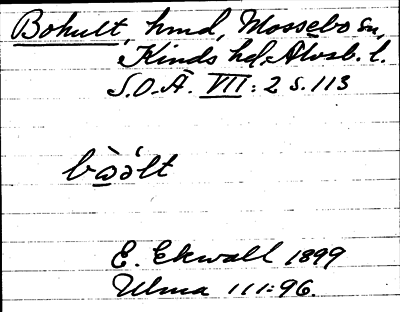 Bohult, hmd, Mossebo sn,
Kinds hd, Älvsb. l.
S.O.Ä. VII: 2 s. 113
E. Ekwall 1899
Ulma 111:96.